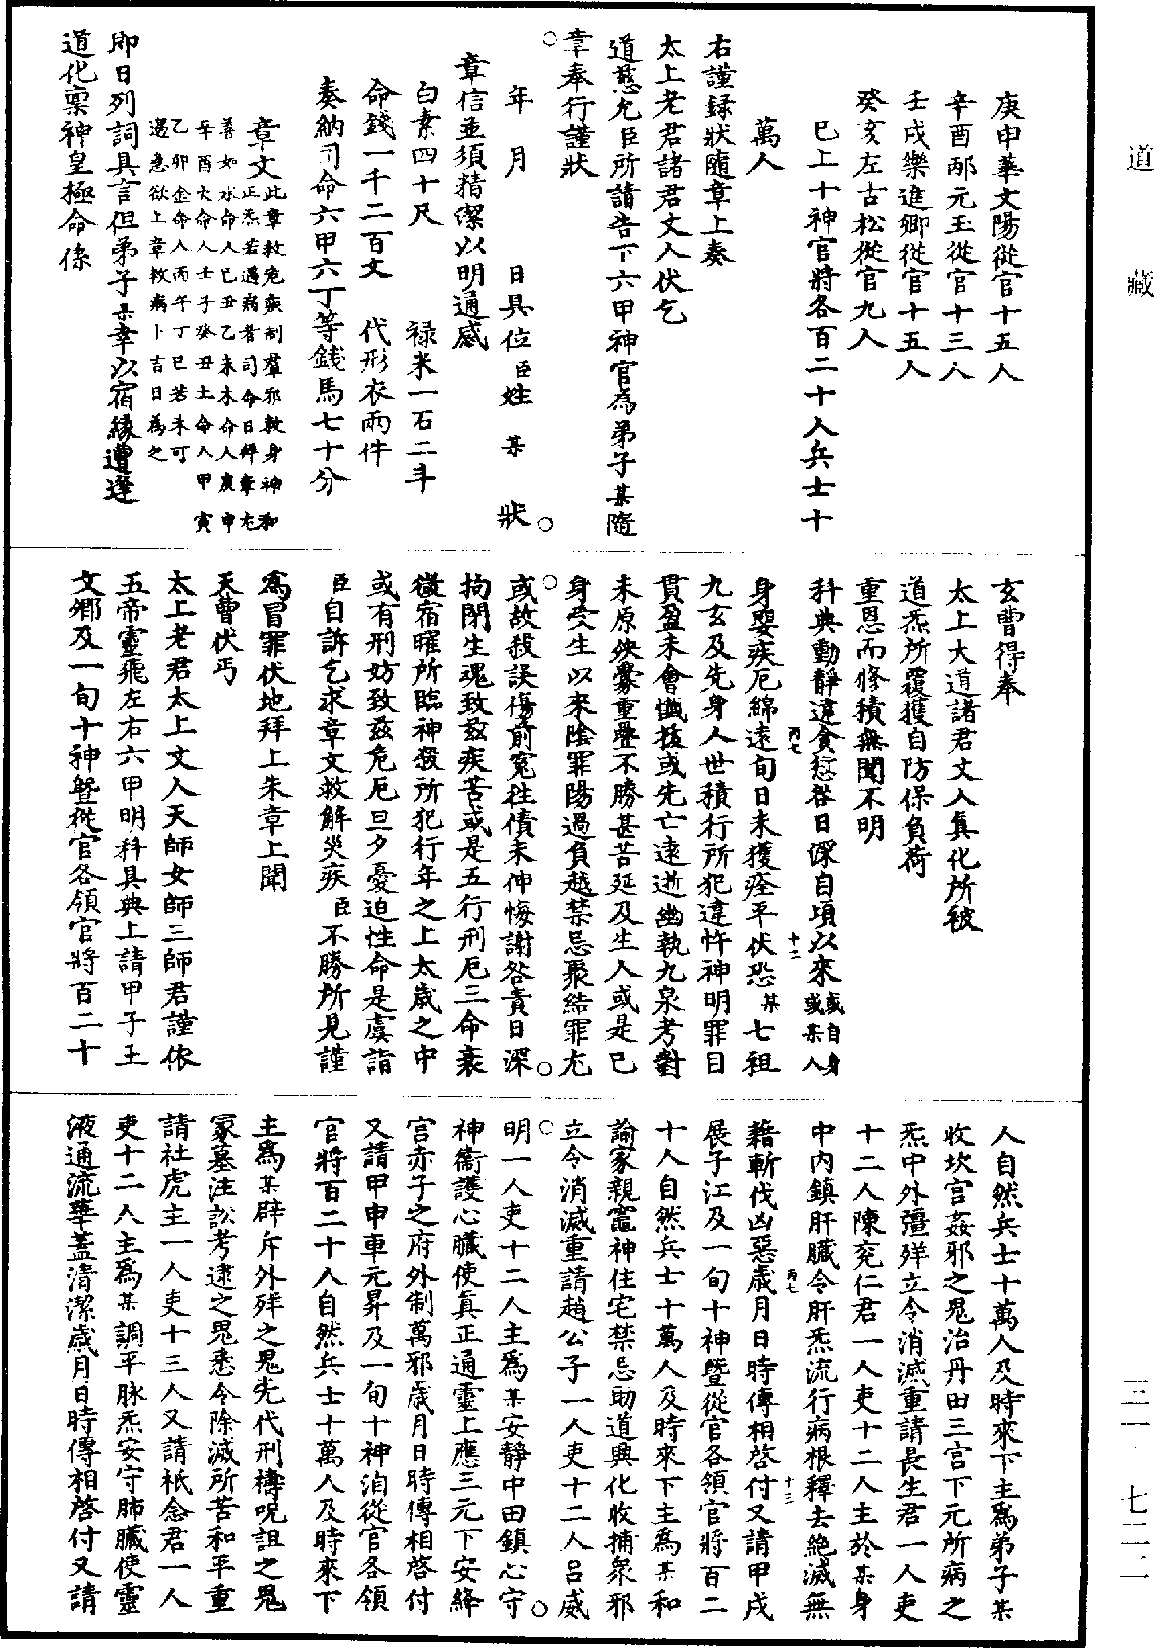 道藏
三一·七二二
庚申華文陽從官十五人
辛酉邴元玉從官十三人
壬戌樂進卿從官十五人
癸亥左古松從官九人
巳上十神官將各百二十人兵士十
萬人
右謹録狀隨章上奏
太上老君諸君丈人伏乞
道慈允臣所請告下六甲神官為弟子某隨
章奉行謹狀
年月　日具位臣姓某　狀
章信並須精潔以明通感
白素四十尺　祿米一石二斗
命錢一千二百文　代形衣兩件
奏納司命六甲六丁等錢馬七十分
章文此章救危疾制羣邪救身神和
正炁若遇病者司命日拜章尤
善如水命人己丑乙未木命人庚申
辛酉火命人壬子癸丑土命人甲寅
乙卯金命人丙午丁巳若未可
遇急欲上章救病卜吉日為之
即日列詞具言但弟子某幸以宿緣遭逢
道化禀神皇極命係
玄曹得奉
太上大道諸君丈人真化所被
道炁所覆獲自防保負荷
重恩而修積無聞不明
科典動靜違負愆咎日深自頃以來或自身或某人
丙七
十二
身嬰疾厄綿遠旬日未獲痊平伏恐某七祖
九玄及先身人世積行所犯違忤神明罪目
貫盈未會懺拔或先亡遠逝幽執九泉考對
未原殃釁重疊不勝甚苦延及生人或是己
身受生以來陰罪陽過負越禁忌聚結罪尤
或故殺誤傷前冤往債未伸悔謝咎責日深
拘閉生魂致茲疾苦或是五行刑厄三命衰
徵宿曜所臨神殺所犯行年之上太歲之中
或有刑妨致茲危厄旦夕憂迫性命是虞詣
臣自訴乞求章文救解災疾臣不勝所見謹
為冒罪伏地拜上朱章上聞
天曹伏丐
太上老君太上丈人天師女師三師君謹依
五帝靈飛左右六甲明科具典上請甲子王
文卿及一旬十神暨從官各領官將百二十
人自然兵士十萬人及時來下主為弟子某
收坎宫姦邪之鬼治丹田三宫下元所病之
炁中外殭殃立令消滅重請長生君一人吏
十二人陳兖仁君一人吏十二人主於某身
中内鎮肝臟令肝炁流行病根釋去絶滅無
藉斬伐凶惡歲月日時傳相啓付又請甲戌
丙七
十三
展子江及一旬十神暨從官各領官將百二
十人自然兵士十萬人及時來下主為某和
諭家親竈神住宅禁忌助道興化收捕衆邪
立令消滅重請趙公子一人吏十二人吕威
明一人吏十二人主為某安靜中田鎮心守
神衛護心臟使真正通靈上應三元下安絳
宫赤子之府外制萬邪歲月日時傳相啓付
又請甲申車元昇及一旬十神洎從官各領
官將百二十人自然兵士十萬人及時來下
主為某辟斥外殃之鬼先代刑禱呪詛之鬼
冢墓注訟考逮之鬼悉令除滅所苦和平重
請社虎主一人吏十三人又請祇念君一人
吏十二人主為某調平脉炁安守肺臟使靈
液通流華蓋清潔歲月日時傳相啓付又請